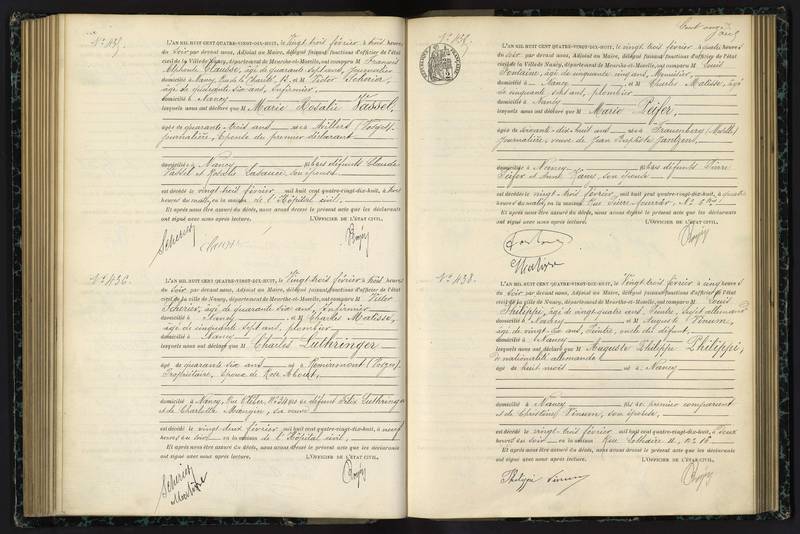 N° 435.
L'AN MIL HUIT CENT QUATRE-VINGT-DIX-HUIT, le Vingt trois février à trois heures
du Soir par devant nous, Adjoint au Maire, délégué faisant fonctions d'officier de l'état
civil de la Ville de Nancy, département de Meurthe-et-Moselle, ont comparu M François
Alphonse Clausse, âgé de quarante sept ans, journalier
domicilié à Nancy, et M Victor Scherier,
âgé de quarante six ans, Infirmier,
domicilié à Nancy
lesquels nous ont déclaré que M Marie Rosalie Vassel,
agée de quarante-trois ans née à Millery (Vosges)
journalière, épouse du premier déclarant
domiciliée à Nancy fille des défunts Claude
Vassel et Rosalie son épouse
est décédée le vingt-trois février mil huit cent quatre-vingt-dix-huit, à trois
heures du matin, en la maison de l'Hôpital civil,
Et après nous être assuré du décès, nous avons dressé le présent acte que les déclarants
ont signé avec nous après lecture. L'OFFICIER DE L'ÉTAT CIVIL,
Scherier
N° 436.
L'AN MIL HUIT CENT QUATRE-VINGT-DIX-HUIT, le Vingt trois février à trois heures
du Soir par devant nous, Adjoint au Maire, délégué faisant fonctions d'officier de l'état
civil de la ville de Nancy, département de Meurthe-et-Moselle, ont comparu M Victor
Scherier, âgé de quarante six ans, Infirmier
domicilié à Nancy et M Charles Matisse,
âgé de cinquante sept ans, plombier
domicilié à Nancy
lesquels nous ont déclaré que M Charles Luthringer
âgé de quarante six ans né à Remiremont (Vosges)
Propriétaire, époux de Rose About,
domicilié à Nancy, fils de défunt Félix Luthringer
et de Charlotte Mangin, sa veuve
est décédé le vingt-deux février mil huit cent quatre-vingt-dix-huit, à neuf
heures du soir en la maison de l'Hôpital civil,
Et après nous être assuré du décès, nous avons dressé le présent acte que les déclarants
ont signé avec nous après lecture. L'OFFICIER DE L'ÉTAT CIVIL,
Scherier
Matisse
N° 437.
L'AN MIL HUIT CENT QUATRE-VINGT-DIX-HUIT, le vingt trois février à quatre heures
du soir par devant nous, Adjoint au Maire, délégué faisant fonctions d'officier de l'état
civil de la Ville de Nancy, département de Meurthe-et-Moselle, ont comparu M Louis
Fontaine, âgé de cinquante cinq ans, Menuisier,
domicilié à Nancy et M Charles Matisse, âgé
de cinquante sept ans, plombier
domicilié à Nancy
lesquels nous ont déclaré que M Marie Peifer,
agée de soixante-dix-huit ans née à Frauenberg (Moselle)
journalière, veuve de Jean Baptiste Jantzen,
domiciliée à Nancy fille des défunts Pierre
Peifer et son épouse
est décédée le vingt-trois février mil huit cent quatre-vingt-dix-huit, à quatre
heures du matin, en la maison Rue Pierre Fourrier,
Et après nous être assuré du décès, nous avons dressé le présent acte que les déclarants
ont signé avec nous après lecture. L'OFFICIER DE L'ÉTAT CIVIL,
Matisse
N° 438.
L'AN MIL HUIT CENT QUATRE-VINGT-DIX-HUIT, le Vingt trois février à cinq heures
du Soir par devant nous, Adjoint au Maire, délégué faisant fonctions d'officier de l'état
civil de la Ville de Nancy, département de Meurthe-et-Moselle, ont comparu M Louis
Philippi, âgé de vingt-quatre ans, Peintre, sujet allemand
domicilié à Nancy et M Auguste Vinum,
âgé de vingt-six ans, Peintre, oncle du défunt,
domicilié à Nancy
lesquels nous ont déclaré que M Auguste Philippe Philippi,
de nationalité allemande
âgé de huit mois né à Nancy
domicilié à Nancy fils du premier comparant
et de Christine Vinum, son épouse,
est décédé le vingt-trois février, mil huit cent quatre-vingt-dix-huit, à deux
heures du soir en la maison Rue Lothaire II, n° 16
Et après nous être assuré du décès, nous avons dressé le présent acte que les déclarants
ont signé avec nous après lecture. L'OFFICIER DE L'ÉTAT CIVIL,
Philippi Vinum